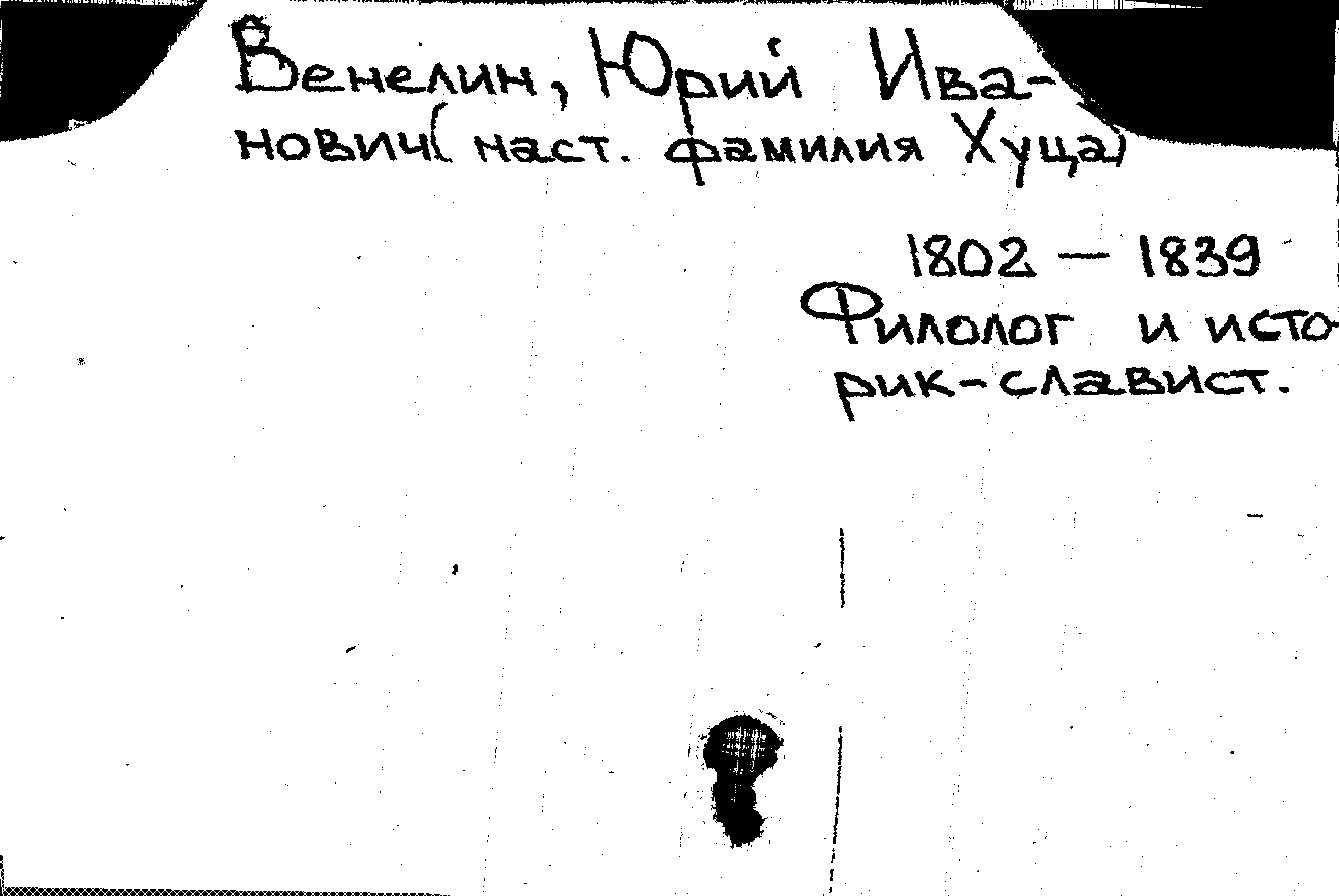 Венелин, Юрий Ива-
нович( наст. фамилия Хуца)
1802 — 1839
Филолог и исто-
рик-славист.